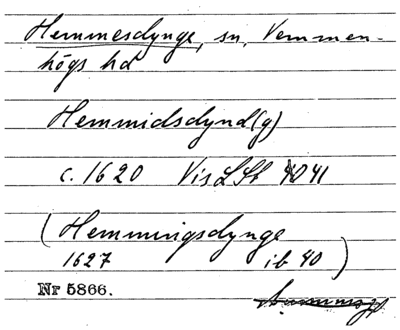 Hemmesdynge, sn, Vemmen-
högs hd
Hemmidsdynd(g)
c. 1620 Vis LSt 41
(Hemmingsdynge
1627 ib 40)
Nr 5866.